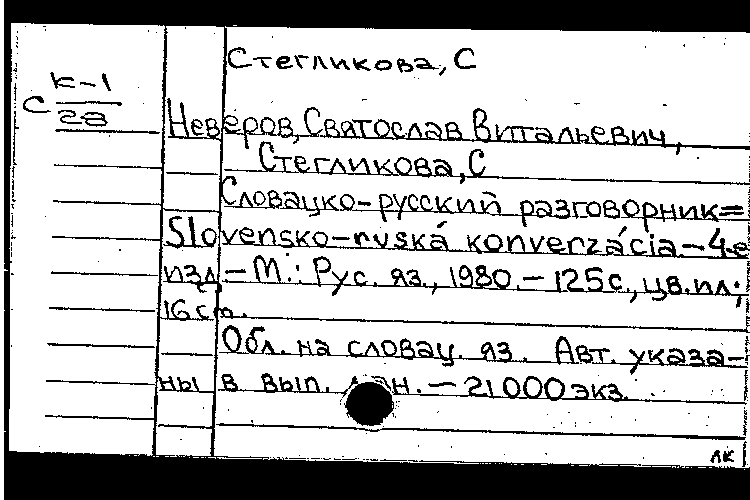 Стегликова, С
С К-1
28
Неверов, Святослав Витальевич,
Стегликова, С
Словацко-русский разговорник=
Slovensko-ruská konverzácia.-4-е
изд.-М.: Рус. яз., 1980.-125с., цв.ил;
16 см.
Обл. на словац. яз. Авт. указа-
ны в вып. дан. - 21000 экз.
лк